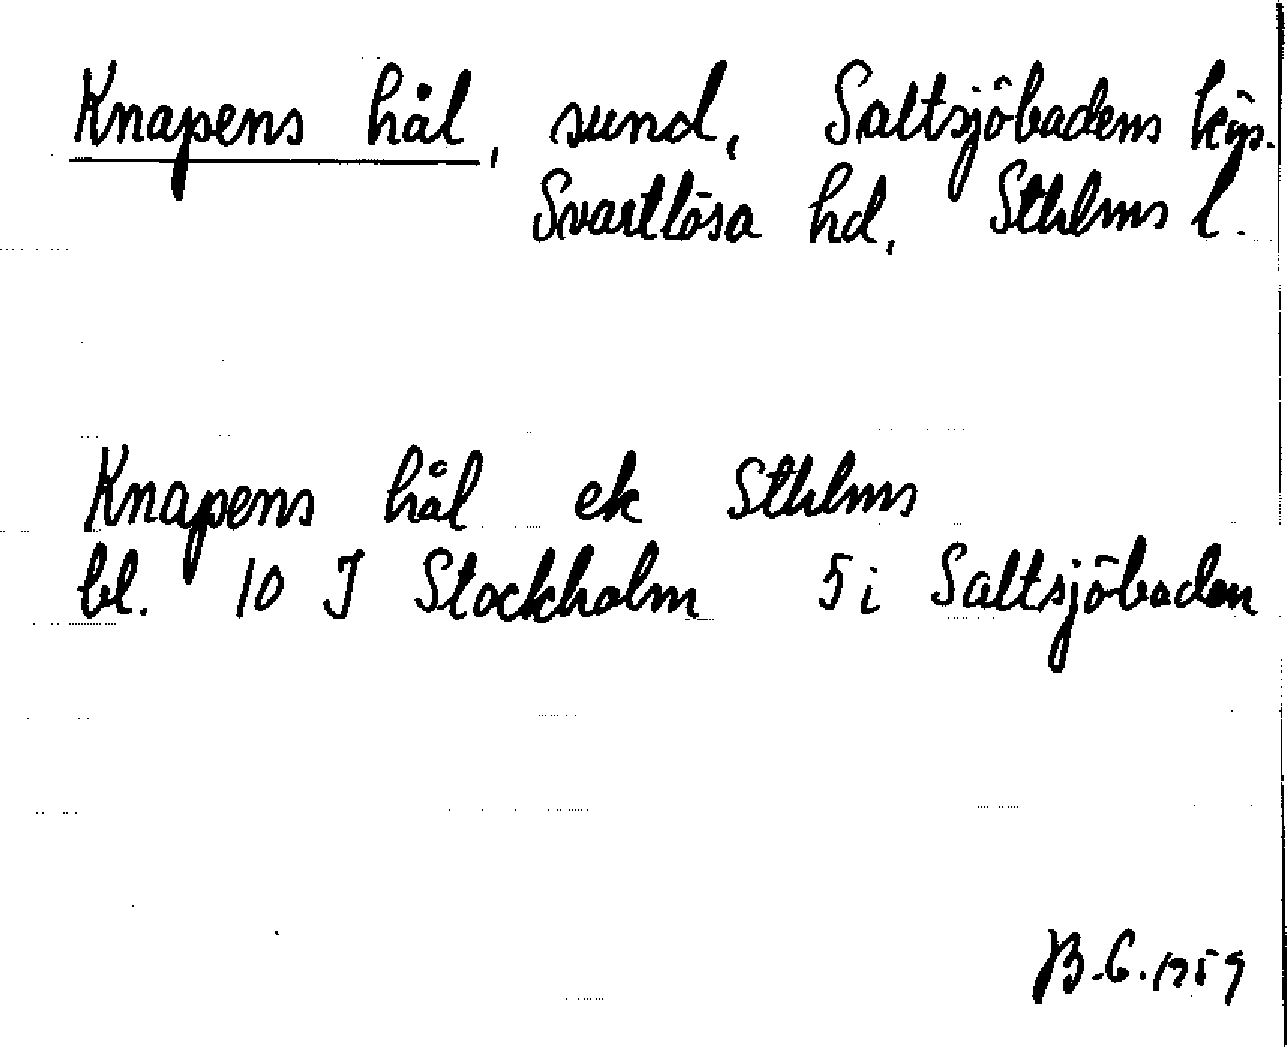 Knapens hål, sund, Saltsjöbadens köp.
Svartlösa hd, Sthlms l.
Knapens hål ek Sthlms
bl. 10 J Stockholm 5 i Saltsjöbaden
B.G. 1959